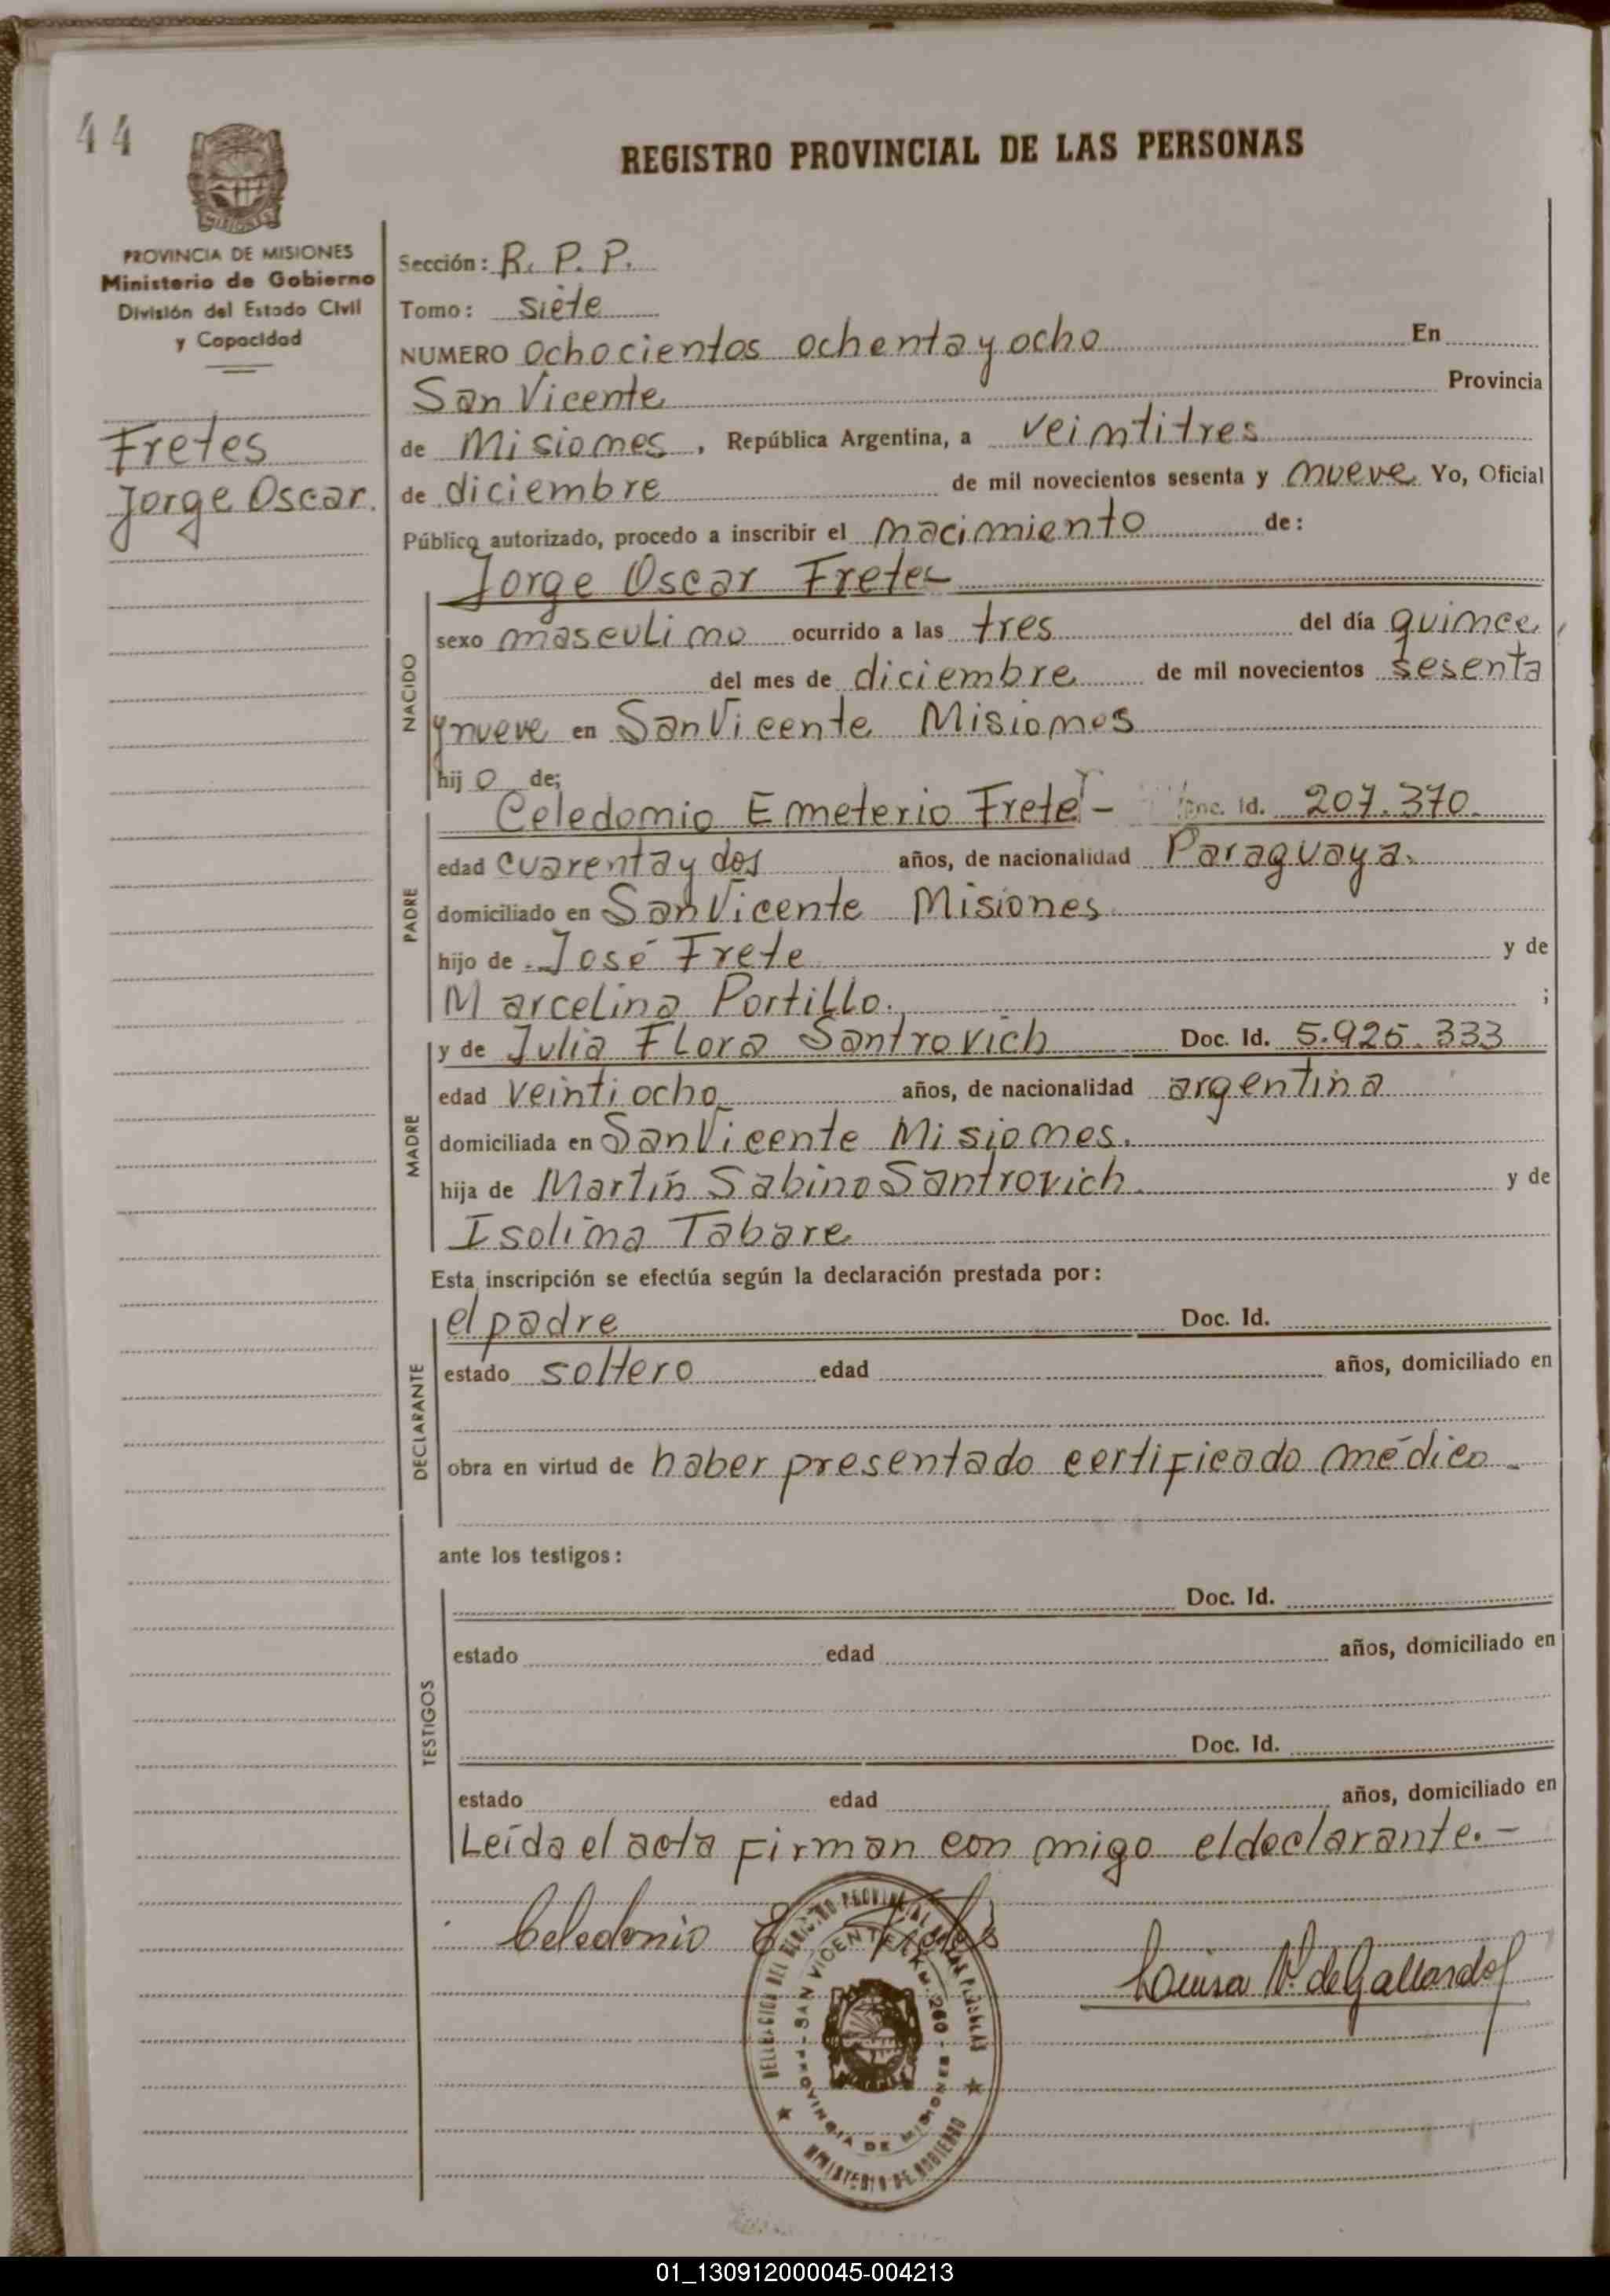 44
REGISTRO PROVINCIAL DE LAS PERSONAS
MISIONES
PROVINCIA DE MISIONES
Ministerio de Gobierno
División del Estado Civil
y Capacidad
Fretes
Jorge Oscar.
Sección: R. P. P.
Tomo: siete
NUMERO ochocientos ochenta y ocho En
San Vicente Provincia
de Misiones, República Argentina, a veintitres
de diciembre de mil novecientos sesenta y nueve Yo, Oficial
Público autorizado, procedo a inscribir el nacimiento de:
NACIDO
Jorge Oscar Fretes
sexo masculino ocurrido a las tres del día quince
del mes de diciembre de mil novecientos sesenta
y nueve en San Vicente Misiones
hijo de;
PADRE
Celedonio Emeterio Frete - Doc. Id. 207.370.
edad cuarenta y dos años, de nacionalidad Paraguaya.
domiciliado en San Vicente Misiones
hijo de José Frete y de
Marcelina Portillo. ;
MADRE
y de Julia Flora Santrovich Doc. Id. 5.925.333
edad veintiocho años, de nacionalidad argentina
domiciliada en San Vicente Misiones.
hija de Martín Sabino Santrovich. y de
Isolina Tabare
Esta inscripción se efectúa según la declaración prestada por:
DECLARANTE
el padre Doc. Id.
estado soltero edad años, domiciliado en
obra en virtud de haber presentado certificado médico -
ante los testigos:
TESTIGOS
Doc. Id.
estado edad años, domiciliado en
Doc. Id.
estado edad años, domiciliado en
Leída el acta firman con migo el declarante. -
Celedonio E. Fretes
Louisa V. de Gallardo
DELEGACION DEL REGISTRO PROVINCIAL DE LAS PERSONAS
SAN VICENTE KM. 260 - PROVINCIA DE MISIONES
MINISTERIO DE GOBIERNO
01_130912000045-004213